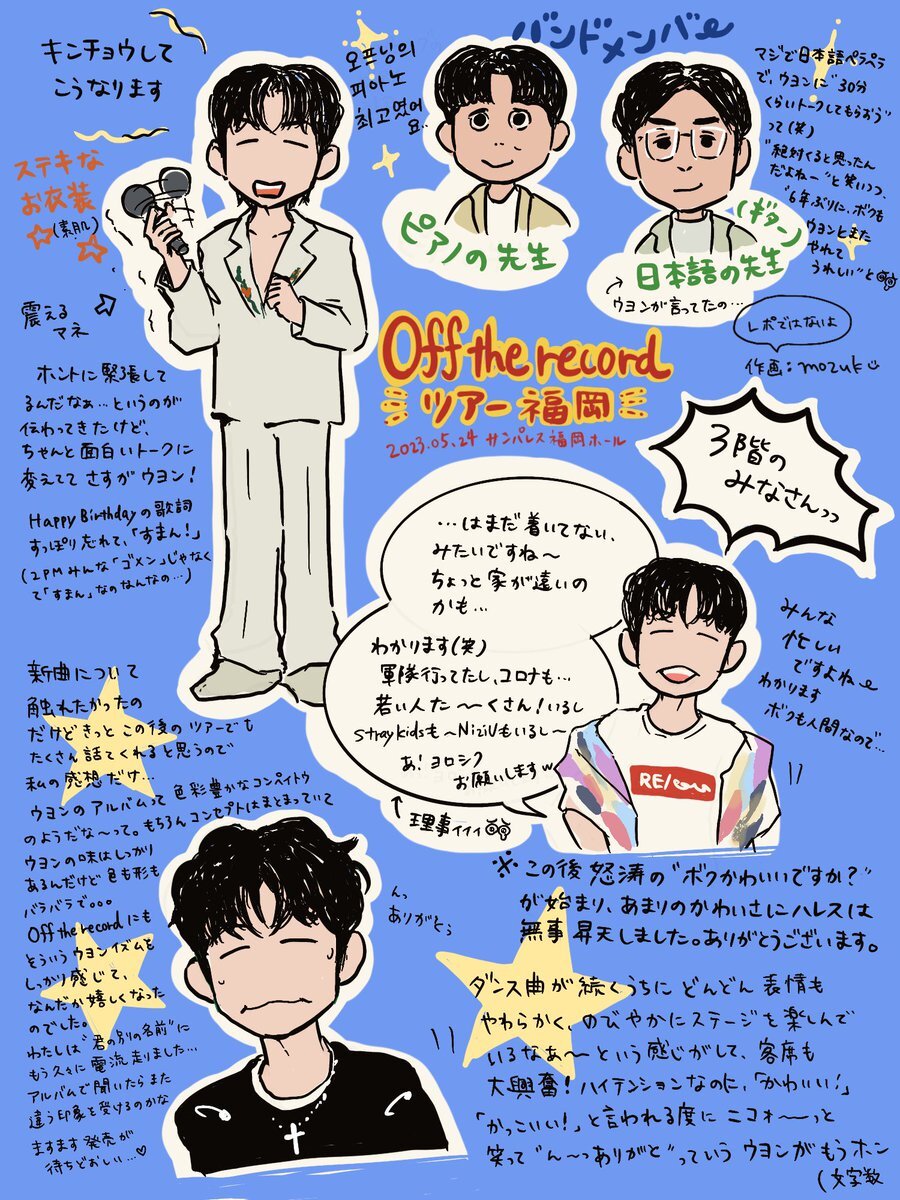 キンチョウして
こうなります
ステキな
お衣装
(素肌)
震える
マネ
오프닝의
피아노
최고였어
요..
バンドメンバー
ピアノの先生
(ギター)
日本語の先生
ウヨンが言ってたの…
マジで日本語ペラペラ
で、ウヨンに"30分
くらいトークしてもらおう"
って(笑)
"絶対くると思ったん
だよねー"と笑いつつ、
"6年ぶりに、ボクも
ウヨンとまた
やれて
うれしい"と
レポではないよ
作画:mozuk
Off the record
ツアー福岡
2023.05.24 サンパレス福岡ホール
ホントに緊張して
るんだなぁ…というのが
伝わってきたけど、
ちゃんと面白いトークに
変えてて さすがウヨン!
Happy Birthdayの歌詞
すっぽり忘れて、「すまん!」
(2PMみんな「ゴメン」じゃなく
て「すまん」なのなんなの…)
3階の
みなさんっっ
…はまだ着いてない、
みたいですね〜
ちょっと家が遠いの
かも…
わかります(笑)
軍隊行ってたし、コロナも…
若い人た〜〜くさん!いるし
stray kidsも〜NiziUもいるし〜
あ!ヨロシク
お願いしますw
理事ィィィ
みんな
忙しい
ですよね〜
わかります
ボクも人間なので…
RE/
新曲について
触れたかったの
だけどきっとこの後のツアーでも
たくさん話てくれると思うので
私の感想だけ…
ウヨンのアルバムって色彩豊かなコンペイトウ
のようだな〜って。もちろんコンセプトはまとまっていて
ウヨンの味はしっかり
あるんだけど色も形も
バラバラで。。。
Off the recordにも
そういうウヨンイズムも
しっかり感じて、
なんだか嬉しくなった
のでした。
わたしは"君の別の名前"に
もう久々に電流走りました…
アルバムで聞いたらまた
違う印象を受けるのかな
ますます発売が
待ちどおしい…♡
んっ
ありがとう
※この後 怒涛の"ボクかわいいですか?"
が始まり、あまりのかわいさにハレスは
無事昇天しました。ありがとうございます。
ダンス曲が続くうちに どんどん表情も
やわらかく、のびやかにステージを楽しんで
いるなあ〜という感じがして、客席も
大興奮!ハイテンションなのに、「かわいい!」
「かっこいい!」と言われる度にニコォ〜〜っと
笑って"ん〜っありがと"っていうウヨンがもうホン
(文字数